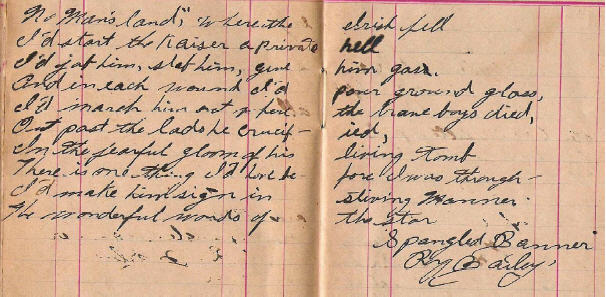 No Man's land", where the Irish fell
I'd start the Kaiser a private hell
I'd jab him, stab him, give him gass.
And in each wound I'd pour ground glass,
I'd march him out where the brave boys died,
Out past the lads he crucif- ied,
In the fearful gloom of his living tomb
There is one thing I'd before I was through -
I'd make him sign in Manner.
The wonderful words of the star
Spangled Banner
Bailey